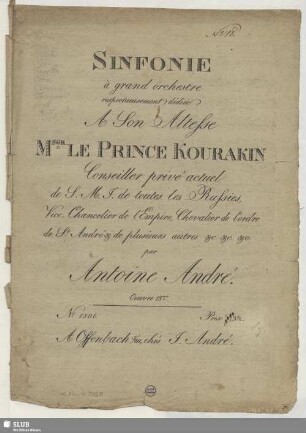 SINFONIE
à grand orchestre
respectueusement dédiée
A Son Altesse
MSGR LE PRINCE KOURAKIN
Conseiller privé actuel
de S. M. I. de toutes les Russies,
Vice Chancelier de l'Empire, Chevalier de l'ordre
de St. André & de plusieurs autres &c. &c. &c.
par
Antoine André.
Oeuvre
No 1506. Prix
A Offenbach s/m, chés J. André.
SLUB